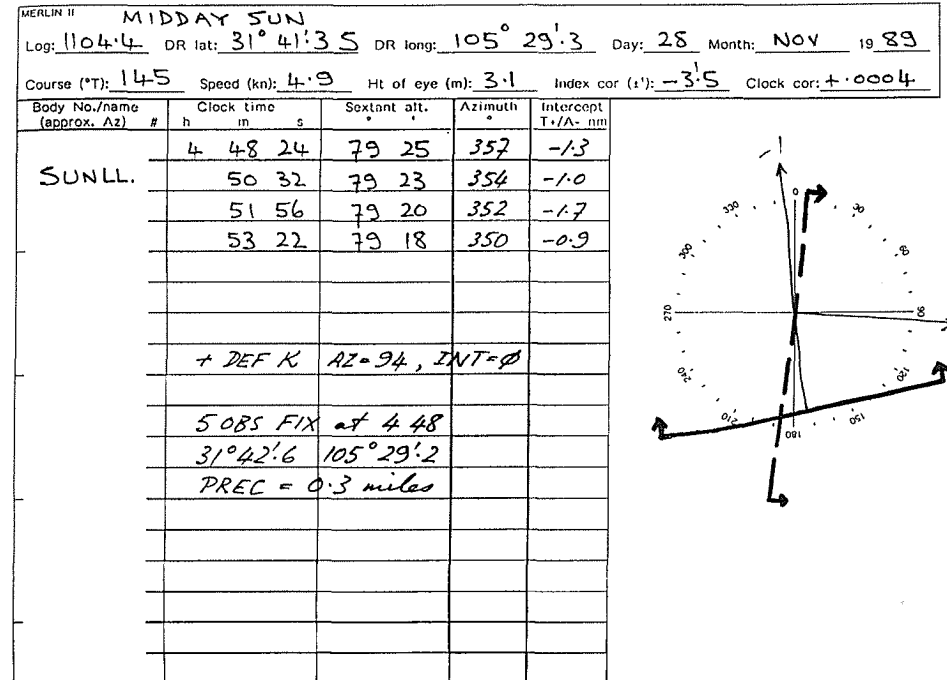 MERLIN II MIDDAY SUN
Log: 1104.4 DR lat: 31° 41'.3 S DR long: 105° 29'.3 Day: 28 Month: NOV 19 89
Course (°T): 145 Speed (kn): 4.9 Ht of eye (m): 3.1 Index cor (±'): -3'.5 Clock cor: +.0004
Body No./name (approx. Az) # Clock time h m s Sextant alt. ° ' Azimuth ° Intercept T+/A- nm
4 48 24 79 25 357 -1.3
SUN LL. 50 32 79 23 354 -1.0
51 56 79 20 352 -1.7
53 22 79 18 350 -0.9
+ DEF K AZ=94, INT=ϕ
5 OBS FIX at 4 48
31°42'.6 105°29'.2
PREC = 0.3 miles
0
330
30
300
60
270
90
240
120
210
150
180